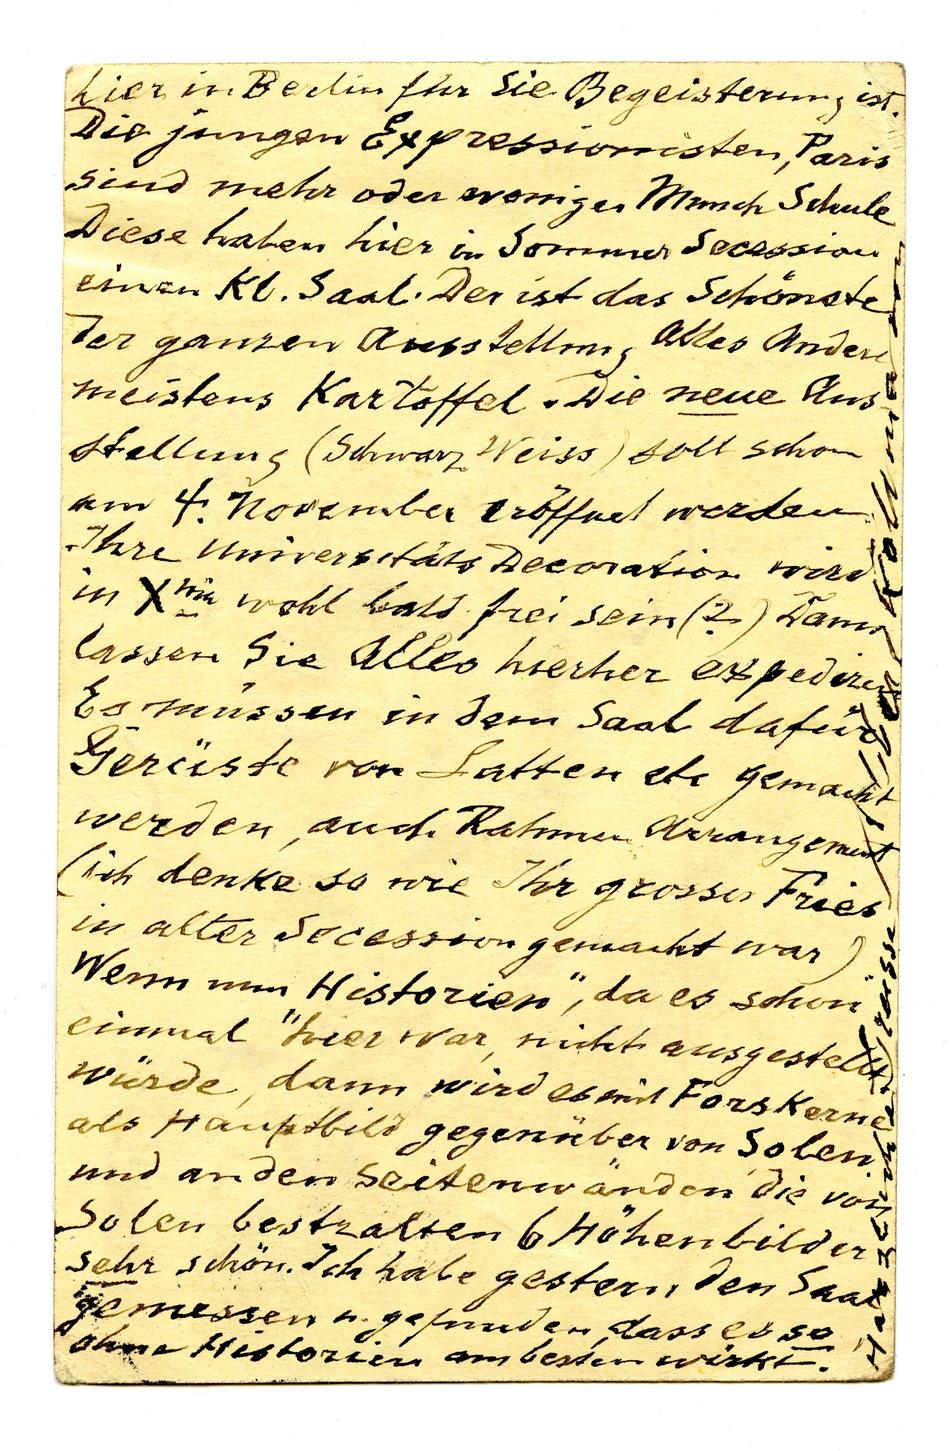 hier in Berlin für Sie Begeisterung ist.
Die jungen Expressionisten, Paris
sind mehr oder weniger Munch Schule
Diese haben hier in Sommer Secession
einen Kl. Saal. Der ist das Schönste
der ganzen Ausstellung, Alles Andere
meistens Kartoffel. Die neue Aus
stellung (Schwarz Weiss) soll schon
am 4. November eröffnet werden
Ihre Universitäts Decoration wird
in X nia wohl bald frei sein (?) Dann
lassen Sie Alles hierher expediren
Es müssen in dem Saal dafür
Gerüste von Latten etc gemacht
werden, auch Rahmen Arrangement
(ich denke so wie Ihr grosser Fries
in alter Secession gemacht war)
Wenn nun Historien", da es schon
einmal "hier war, nicht ausgestellt
würde, dann wird es mit Forskerne
als Hauptbild gegenüber von Solen
und an den Seitenwänden die von
Solen bestralten 6 Höhenbilder
sehr schön. Ich habe gestern den Saal
gemessen u. gefunden dass es so
ohne Historien am besten wirkt.
Herzlichste Grüsse Ihr